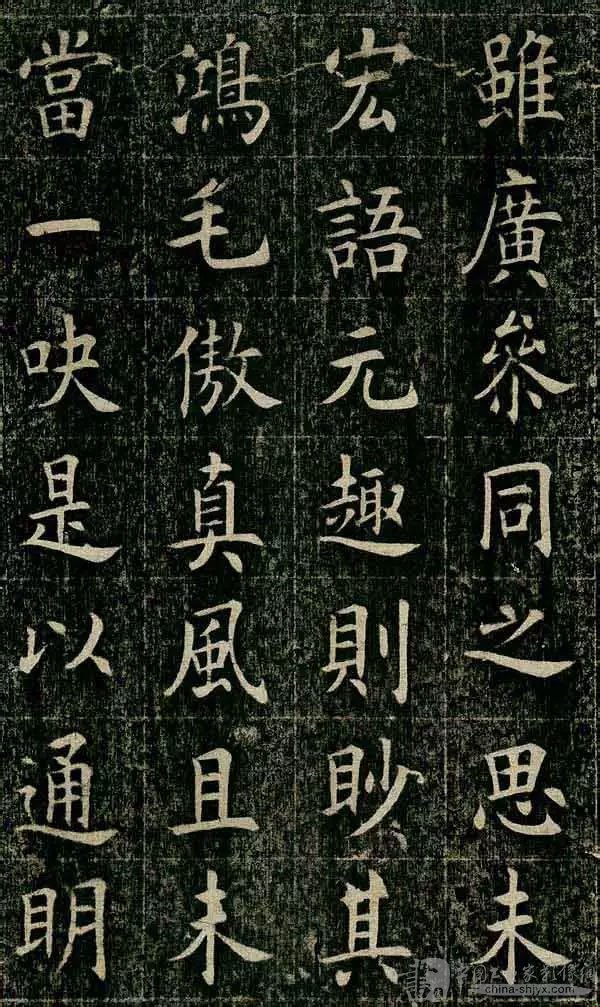 雖廣叅同之思未
宏語元趣則眇其
鴻毛傲真風且未
當一吷是以通明
china-shjyx.com